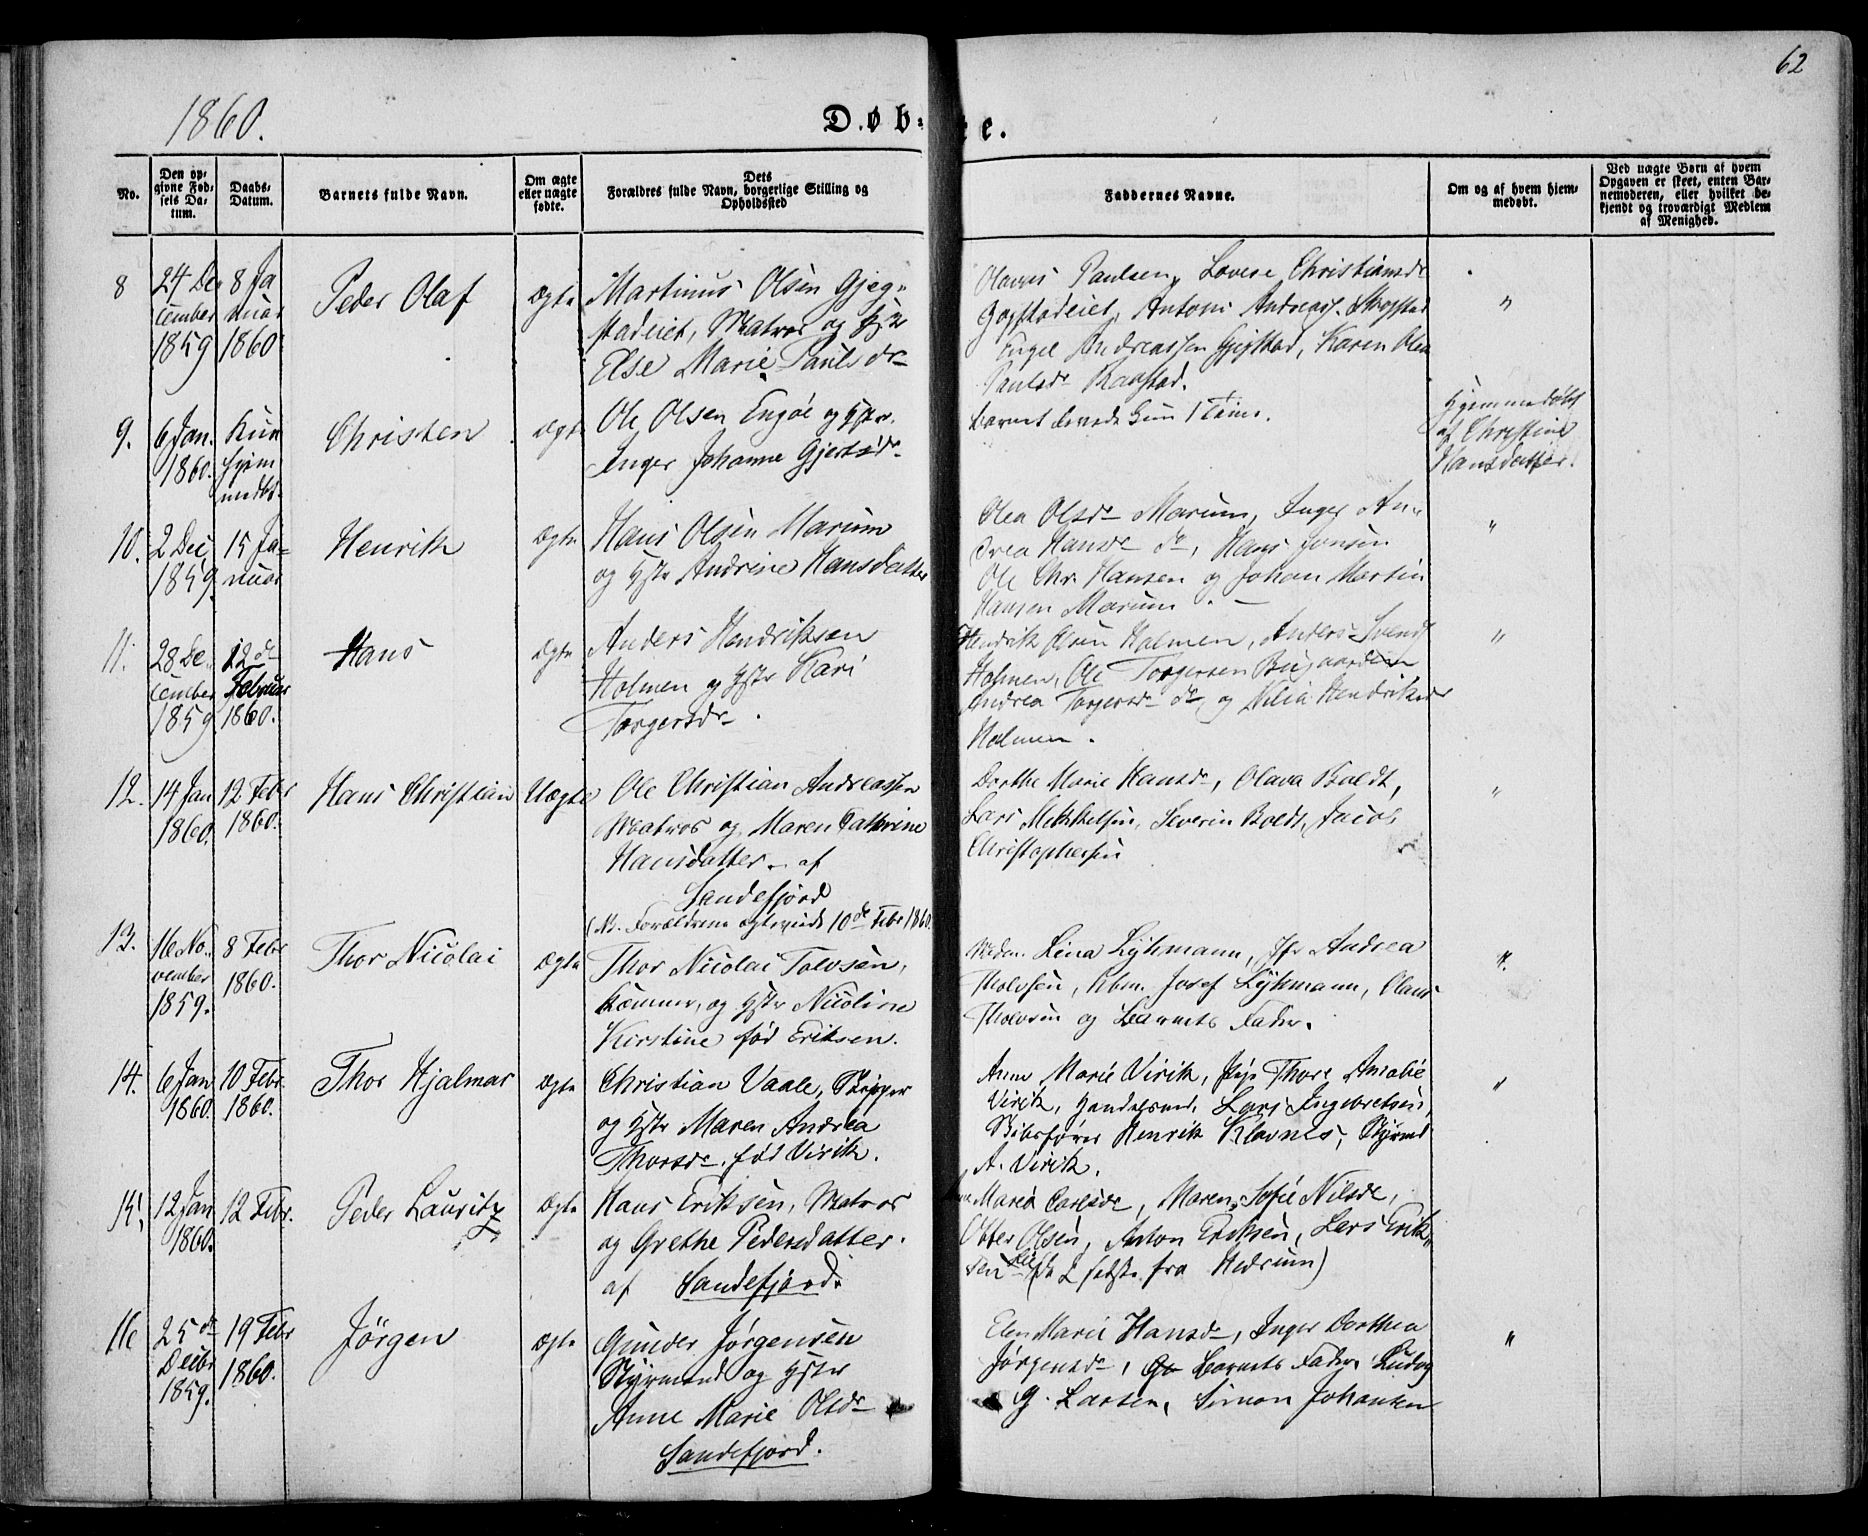 62
1860.
Døb- te.
No.
Den op-
givne Fød-
sels Da-
tum.
Daabs-
Datum.
Barnets fulde Navn.
Om ægte
eller uægte
fødte.
Dets
Forældres fulde Navn, borgerlige Stilling og
Opholdssted
Faddernes Navne.
Om og af hvem hjem-
medøbt.
Ved uægte Børn af hvem
Opgaven er skeet, enten Bar-
nemoderen, eller hvilket be-
kjendt og troværdigt Medlem
af Menighed.
8
24 De-
cember
1859
8 Ja
nuar
1860
Peder Olaf
Ægte
Martinus Olsen Gjeg-
stadeiet, Matros og Hstr
Else Marie Paulsdr
Olaves Paulsen, Lovise Christiansdr
Andreas
Andreassen Gjegstad, Karen Olea
Paulsdr
"
9.
6 Jan.
1860.
Kun
hjem
medbt.
Christen
Ægte
Ole Olsen Engøe og Hstr.
Inger Johanne Gjertsdr
Barnet levede kun 1 Time.
Hjemmedøbt
af Christine
Hansdatter.
10.
2 Dec
1859.
15 Ja-
nuar
Henrik
Ægte
Hans Olsen Marum
og Hstr Andrine Hansdatter
Olea Olsdr Marum, Inger An-
drea Hansdr do, Hans Jensen
Ole Chr. Hansen og Johan Martin
Hansen Marum. -
"
11.
28 De-
cember
1859
12 de
Februar
1860.
Hans
Ægte
Anders Hendriksen
Holmen og Hstr Kari
Torgersdr.
Hendrik Olsen Holmen, Anders Svends
Holmen, Ole Torgersen Bugaarden
Andrea Torgersdr do, og Hendriksdr
Holmen.
"
12.
14 Jan
1860.
12 Febr
1860.
Hans Christian
Uægte
Ole Christian Andreassen
Matros og Maren Cathrine
Hansdatter - af
Sandefjord
(NB. Forældrene ægteviede 10de Febr 1860.
Dorthe Marie Hansdr, Olava Boldt,
Lars Mikkelsen, Severin Boldt, Jacob
Christophersen
"
13.
16 No-
vember
1859.
8 Febr
1860.
Thor Nicolai
Ægte
Thor Nicolai Tolvsen,
Kæmner, og Hstr Nicoline
Kirstine fød Eriksen.
Madm. Lina Lykmann, Jfr Andrea
Tholvsen, Kbm. Josef Lykmann, Claus
Tholvsen og Barnets Fader.
"
14.
6 Jan
1860.
10 Febr.
1860.
Thor Hjalmar
Ægte
Christian Vaale, Skipper
og Hstr Maren Andrea
Thorsdr. fød Virik.
Anne Marie Virik, Pige Thore Amalie
Virik, Handelsmd. Lars Ingebretsen,
Skibsfører Henrik Klavnes, Styrmd
A. Virik.
"
15.
12 Jan
1860.
12 Febr.
Peder Lauritz
Ægte
Hans Eriksen, Matros
og Grethe Pedersdatter.
af Sandefjord.
Maria Carlsdr, Maren Sofie Nilsdr,
Otter Olsen, Anton Eriksen, Lars Erik-
sen (De 2 sidste fra Hedrum)
16
25 de
Decbr
1859.
19 Febr
1860.
Jørgen
Ægte
Gunder Jørgensen
Styrmand og Hstr
Anne Marie Olsdr
Sandefjord.
Elen Marie Hansdr, Inger Dorthea
Jørgensdr, Barnets Fader, Ludvg
G. Larsen, Simon Johansen
"